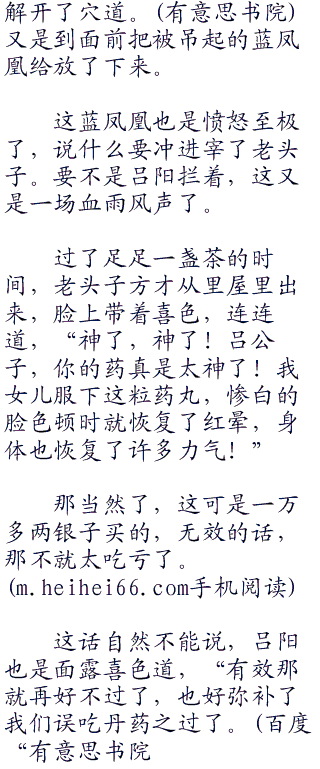 解开了穴道。(有意思书院)
又是到面前把被吊起的蓝凤
凰给放了下来。
这蓝凤凰也是愤怒至极
了，说什么要冲进宰了老头
子。要不是吕阳拦着，这又
是一场血雨风声了。
过了足足一盏茶的时
间，老头子方才从里屋里出
来，脸上带着喜色，连连
道，“神了，神了！吕公
子，你的药真是太神了！我
女儿服下这粒药丸，惨白的
脸色顿时就恢复了红晕，身
体也恢复了许多力气！”
那当然了，这可是一万
多两银子买的，无效的话，
那不就太吃亏了。
(m.heihei66.com手机阅读)
这话自然不能说，吕阳
也是面露喜色道，“有效那
就再好不过了，也好弥补了
我们误吃丹药之过了。(百度
“有意思书院